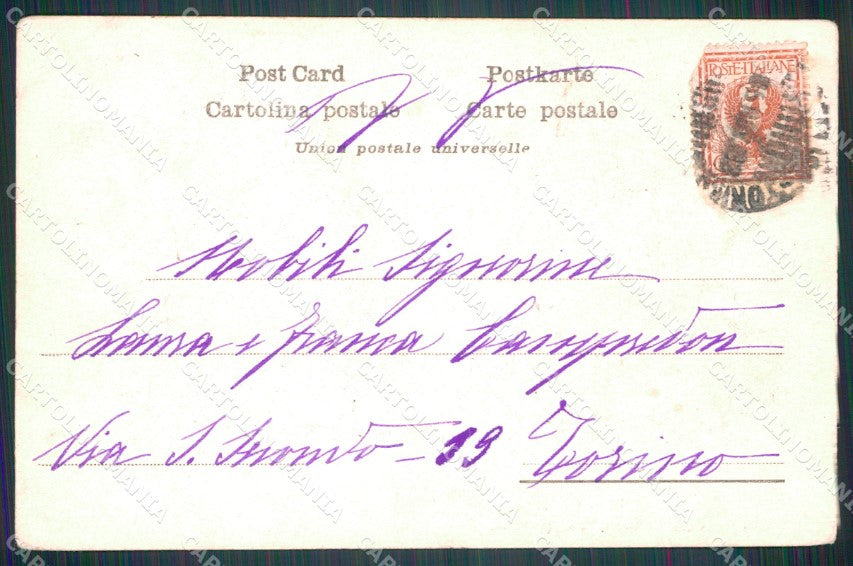 Post Card Postkarte
Cartolina postale Carte postale
Union postale universelle
POSTE·ITALIANE
Nobili Signorine
Laura e Franca Campredon
Via S. Secondo - 19 Torino
CARTOLINOMANIA